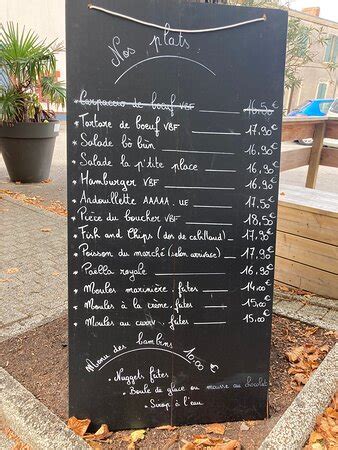 Nos plats
* Carpaccio de boeuf VBF 16,50€
* Tartare de boeuf VBF 17,90€
* Salade bò bùn 16,90€
* Salade la p'tite place 16,90€
* Hamburger VBF 16,90€
* Andouillette AAAAA. UE 17,90€
* Pièce du boucher VBF 18,50€
* Fish and Chips (dos de cabillaud) 17,90€
* Poisson du marché (selon arrivage) 17,90€
* Paella royale 16,90€
* Moules marinière, frites 14,00€
* Moules à la crème, frites 15,00€
* Moules au curry, frites 15,00€
Menu des bambins 10,00€
• Nuggets frites
• Boule de glace ou mousse au chocolat
• Sirop à l'eau